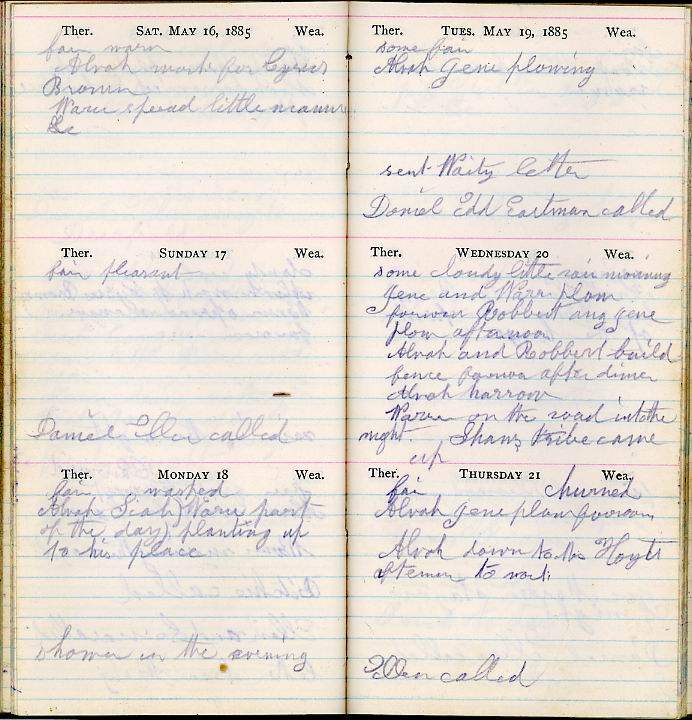 Ther. SAT. MAY 16, 1885 Wea.
fair warm
Alvah work for Cyrus
Brown
Warn spread little manure
&c
Ther. SUNDAY 17 Wea.
fair pleasant
Daniel Ellen called
Ther. MONDAY 18 Wea.
fair washed
Alvah Warn part
of the day planting up
to his place
shower in the evening
Ther. TUES. MAY 19, 1885 Wea.
some fair
Alvah gene plowing
sent Waity letter
Daniel Edd Eastman called
Ther. WEDNESDAY 20 Wea.
some cloudy little rain morning
gene and Warn plow
Robbert gene
plow afternoon
Alvah and Robbert build
fence after diner
Alvah harrow
Warn on the road into the
night. tribe came
up
Ther. THURSDAY 21 Wea.
fair churned
Alvah gene plow
Alvah down to Hoyts
to work
Ellen called